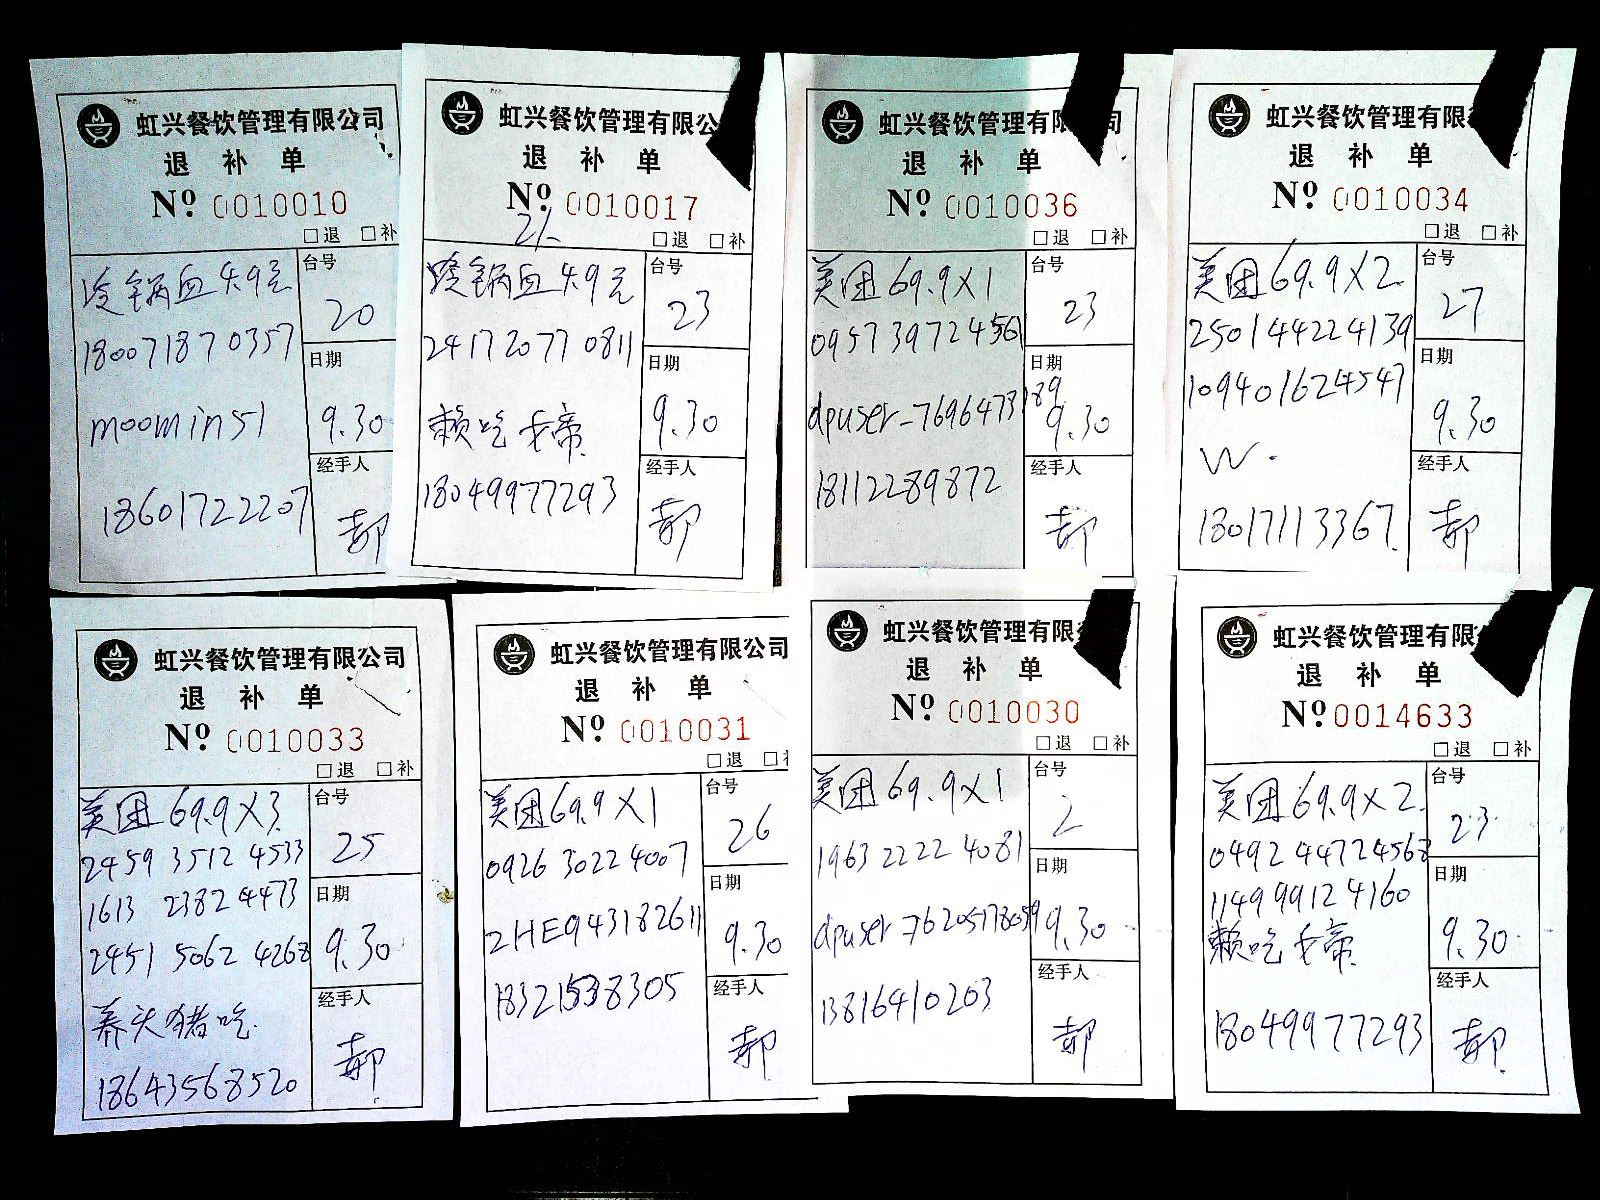 虹兴餐饮管理有限公司
退 补 单
Nº 0010010
□退 □补
冷锅血4.9元
180071870357
moomins1
18601722207
台号
20
日期
9.30
经手人
郝
虹兴餐饮管理有限公
退 补 单
Nº 0010017
□退 □补
冷锅血4.9元
241720770811
赖吃
18049977293
台号
23
日期
9.30
经手人
郝
虹兴餐饮管理有限 司
退 补 单
Nº 0010036
□退 □补
美团69.9X1
095739724561
dpuser-7696473189
18112289872
台号
23
日期
9.30
经手人
郝
虹兴餐饮管理有限
退 补 单
Nº 0010034
□退 □补
美团69.9X2
250144224139
109401624547
W.
18017113367
台号
27
日期
9.30
经手人
郝
虹兴餐饮管理有限公司
退 补 单
Nº 0010033
□退 □补
美团69.9X3
2459 3512 4533
1613 2382 4473
2451 5062 4268
养头猪吃
18643568520
台号
25
日期
9.30
经手人
郝
虹兴餐饮管理有限公司
退 补 单
Nº 0010031
□退 □补
美团69.9X1
0926 3022 4007
2HE943182611
18321538305
台号
26
日期
9.30
经手人
郝
虹兴餐饮管理有限
退 补 单
Nº 0010030
□退 □补
美团69.9X1
1963 2222 4081
dpuser-76205178059
13816410203
台号
2
日期
9.30
经手人
郝
虹兴餐饮管理有限
退 补 单
Nº 0014633
□退 □补
美团69.9X2
0492 4472 4568
1149 9912 4160
赖吃
18049977293
台号
23
日期
9.30
经手人
郝